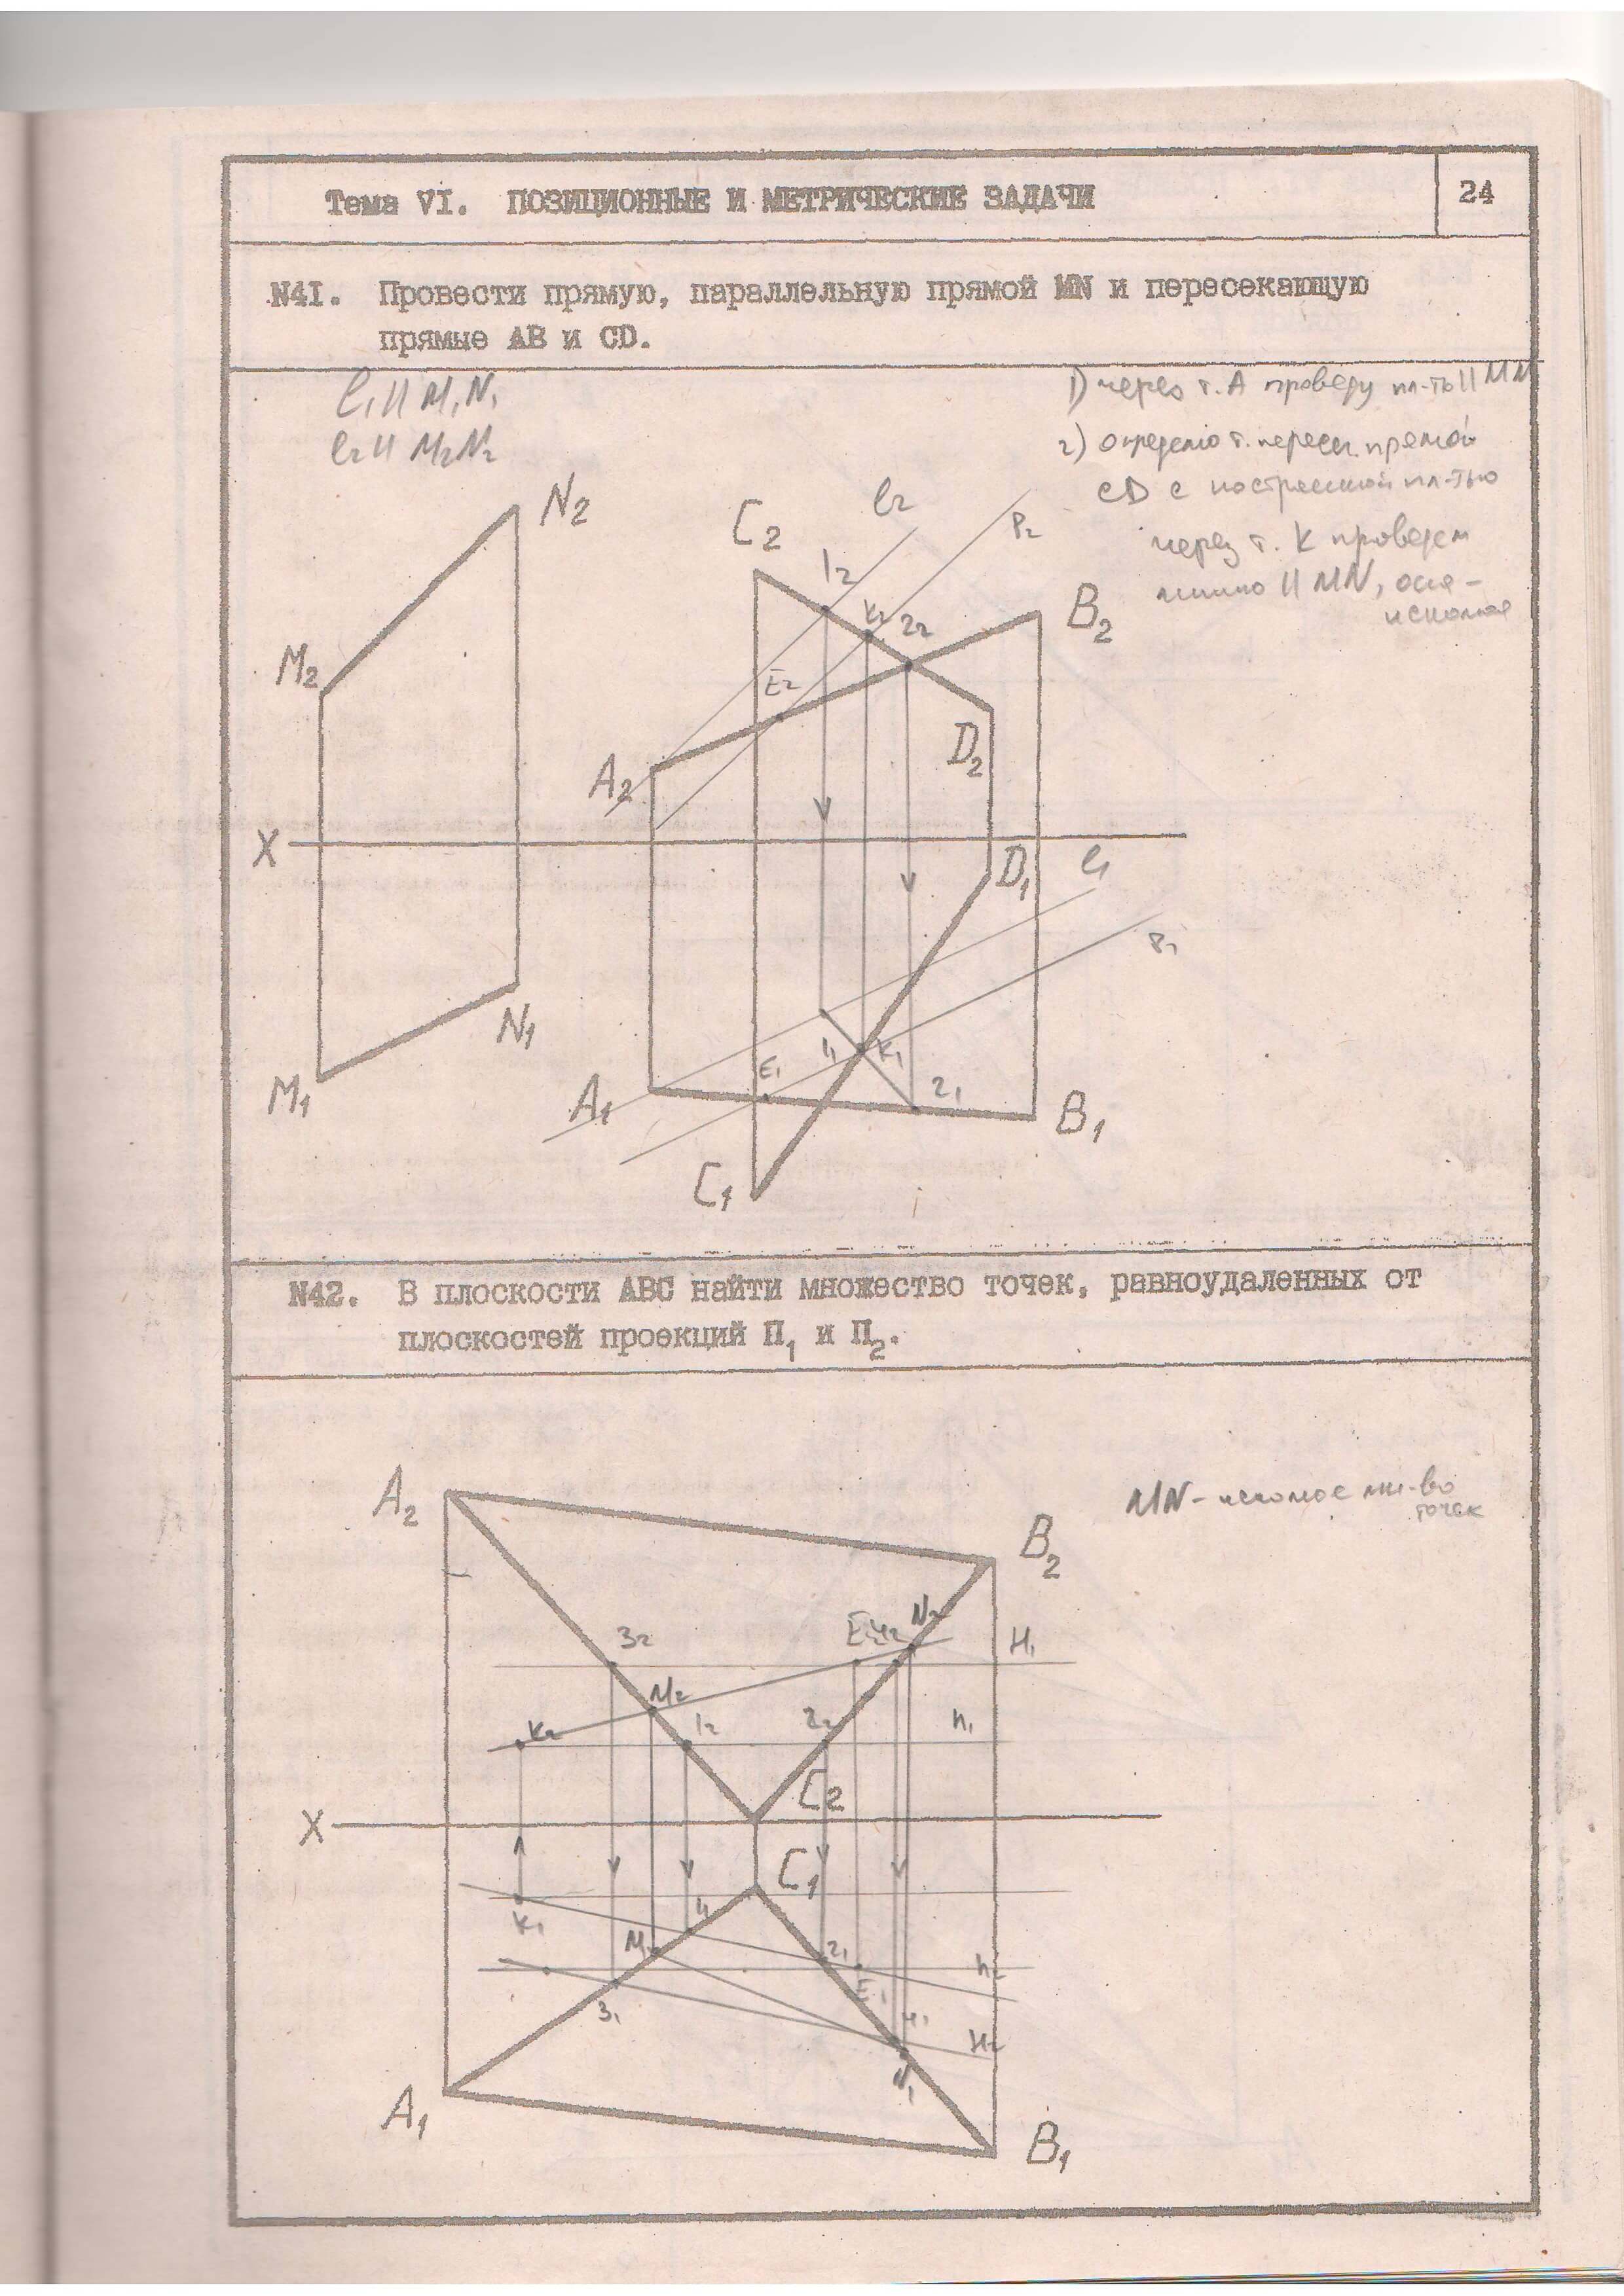 Тема VI. ПОЗИЦИОННЫЕ И МЕТРИЧЕСКИЕ ЗАДАЧИ
24
N41. Провести прямую, параллельную прямой MN и пересекающую
прямые АВ и CD.
l₁ || M₁N₁
l₂ || M₂N₂
1) через т. А проведу пл-ть || MN
2) определю т. пересеч. прямой
CD с построенной пл-тью
через т. К проведем
линию || MN, она -
искомая
N₂
C₂
l₂
P₂
1₂
K₂
2₂
B₂
M₂
E₂
D₂
A₂
X
D₁
l₁
P₁
N₁
1₁
K₁
E₁
2₁
M₁
A₁
B₁
C₁
N42. В плоскости АВС найти множество точек, равноудаленных от
плоскостей проекций П₁ и П₂.
MN - искомое мн-во
точек
A₂
B₂
3₂
E₂
4₂
N₂
H₁
M₂
K₂
1₂
2₂
h₁
C₂
X
C₁
K₁
1₁
M₁
2₁
h₂
E₁
3₁
4₁
H₂
N₁
A₁
B₁